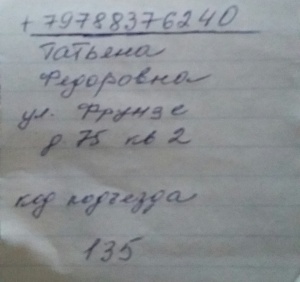 +79788376240
Татьяна
Федоровна
ул. Фрунзе
д 75 кв 2
код подъезда
135